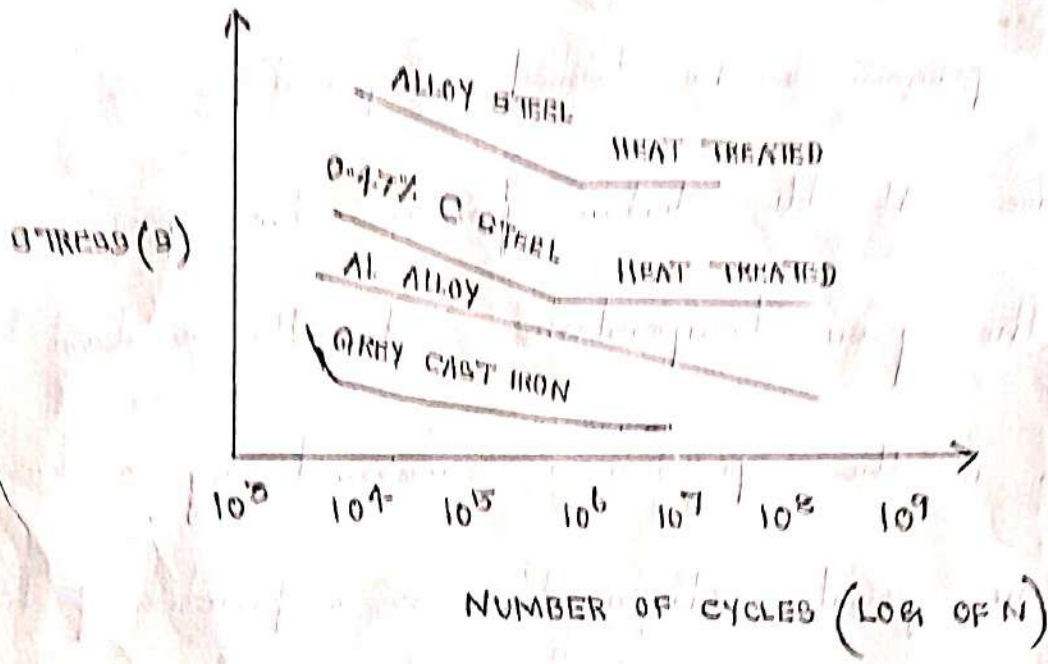 ALLOY STEEL
HEAT TREATED
0.47% C STEEL
STRESS (S)
HEAT TREATED
AL ALLOY
GREY CAST IRON
10³ 10⁴ 10⁵ 10⁶ 10⁷ 10⁸ 10⁹
NUMBER OF CYCLES (LOG OF N)